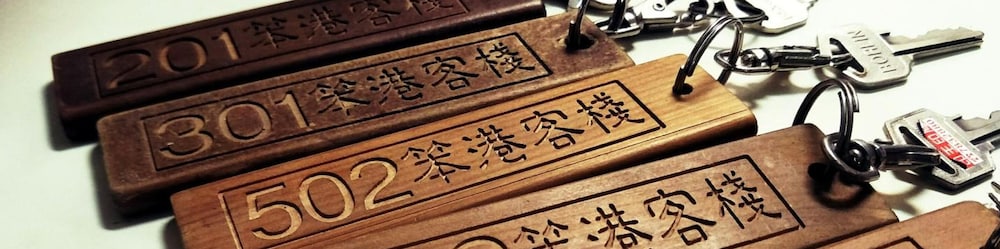 201 笨港客棧
301 笨港客棧
502 笨港客棧
笨港客棧
ROBIN